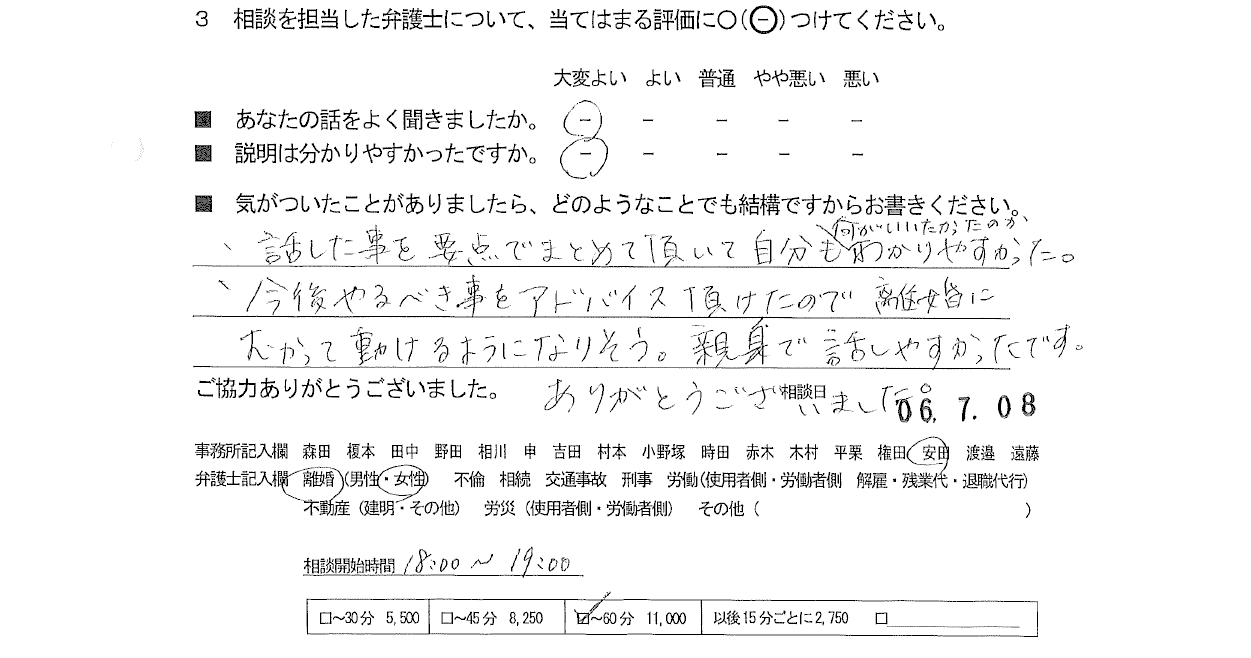 3 相談を担当した弁護士について、当てはまる評価に○(㊀)つけてください。
大変よい よい 普通 やや悪い 悪い
■ あなたの話をよく聞きましたか。 － － － － －
■ 説明は分かりやすかったですか。 － － － － －
■ 気がついたことがありましたら、どのようなことでも結構ですからお書きください。
何がいいたかったのか、
、話した事を要点でまとめて頂いて自分もわかりやすかった。
、今後やるべき事をアドバイス頂けたので離婚に
むかって動けるようになりそう。親身で話しやすかったです。
ご協力ありがとうございました。 ありがとうございました。
相談日 06.7.08
事務所記入欄 森田 榎本 田中 野田 相川 申 吉田 村本 小野塚 時田 赤木 木村 平栗 権田 安田 渡邉 遠藤
弁護士記入欄 離婚(男性・女性) 不倫 相続 交通事故 刑事 労働(使用者側・労働者側 解雇・残業代・退職代行)
不動産(建明・その他) 労災(使用者側・労働者側) その他( )
相談開始時間 18:00～19:00
□～30分 5,500 □～45分 8,250 ☑～60分 11,000 以後15分ごとに2,750 □